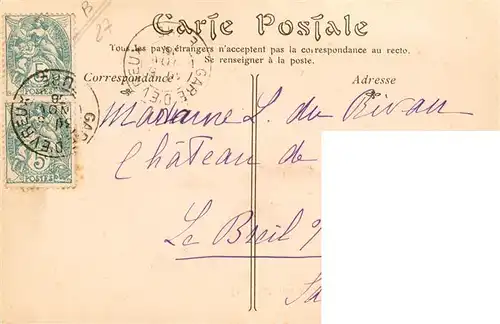 B
27
Carte Postale
Tous les pays étrangers n'acceptent pas la correspondance au recto.
Se renseigner à la poste.
Correspondance
Adresse
GARE D'EVREUX
5
POSTES
GARE D'EVREUX
5
POSTES
Madame L. du Rivau
Château de
Le Breil s/
Sa